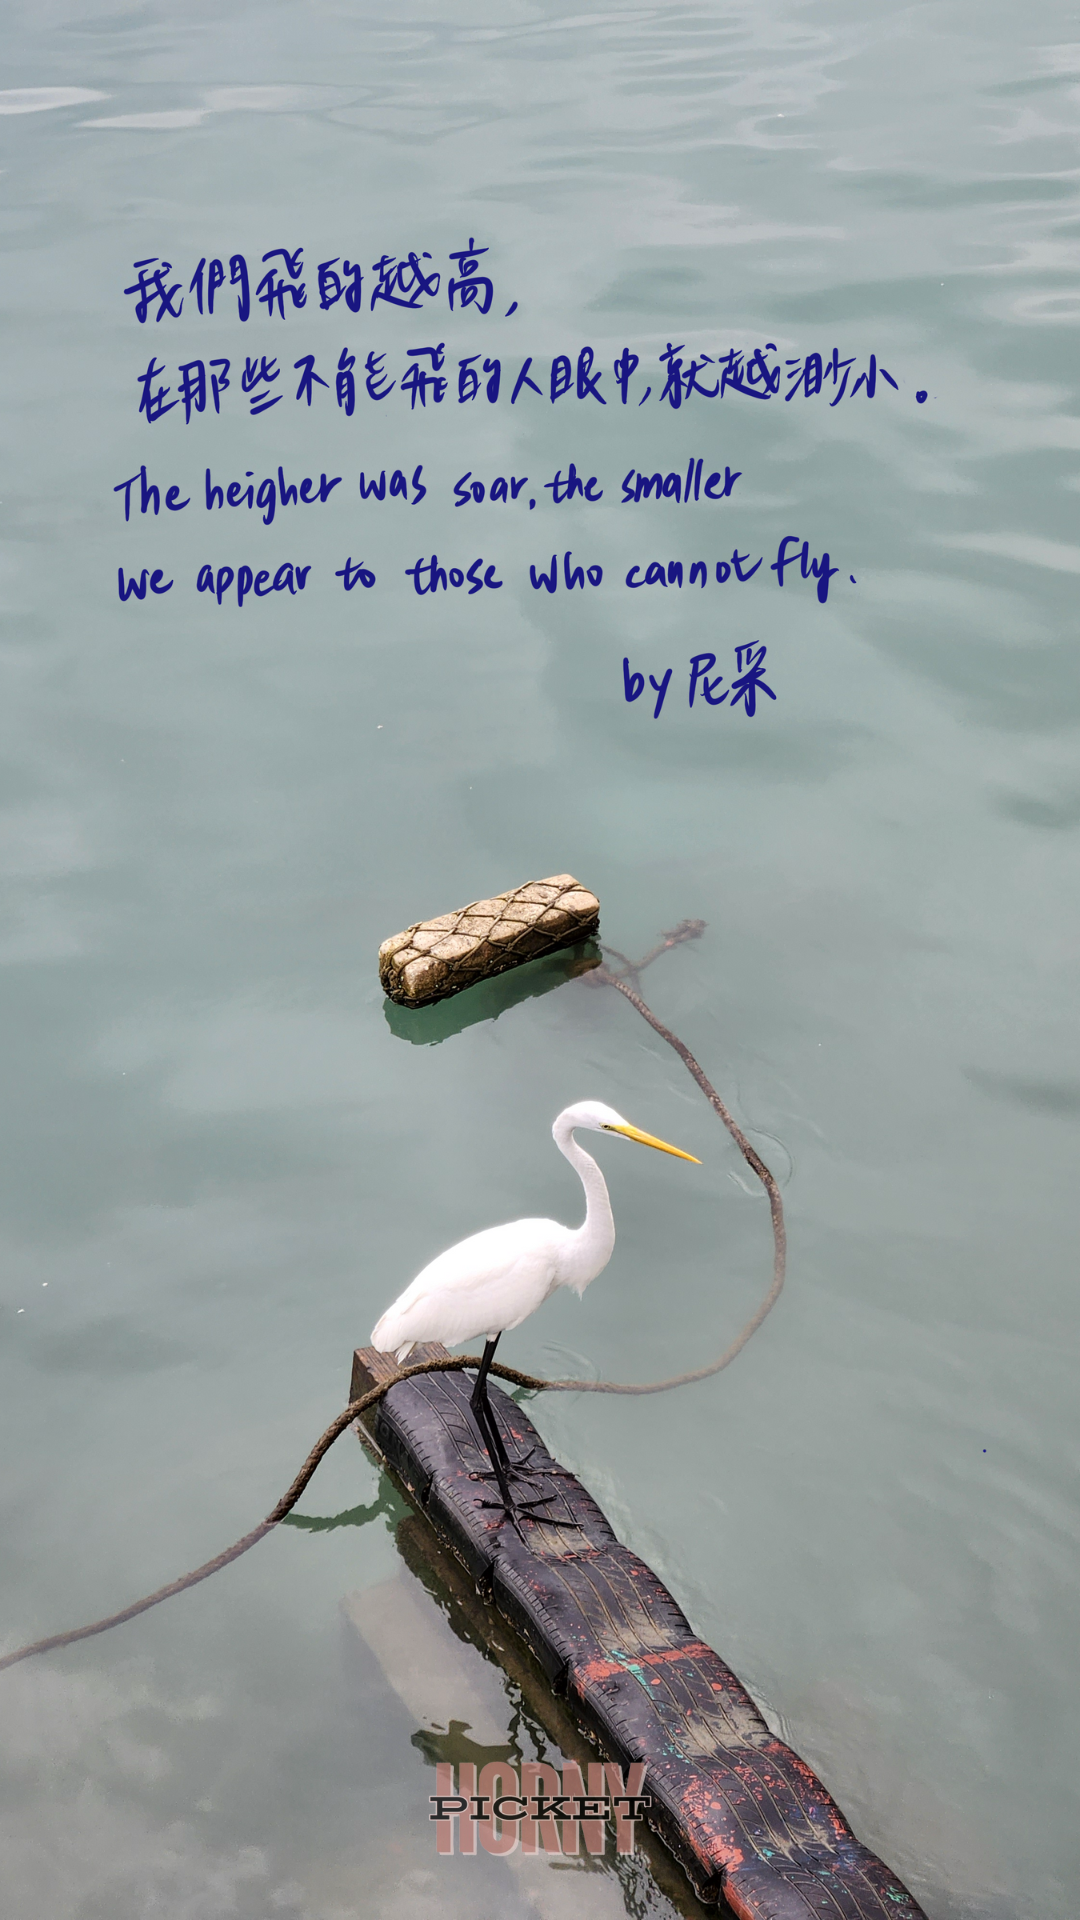 我們飛的越高,
在那些不能飛的人眼中,就越渺小。
The heigher was soar, the smaller
we appear to those who cannot fly.
by 尼采
HORNY
PICKET